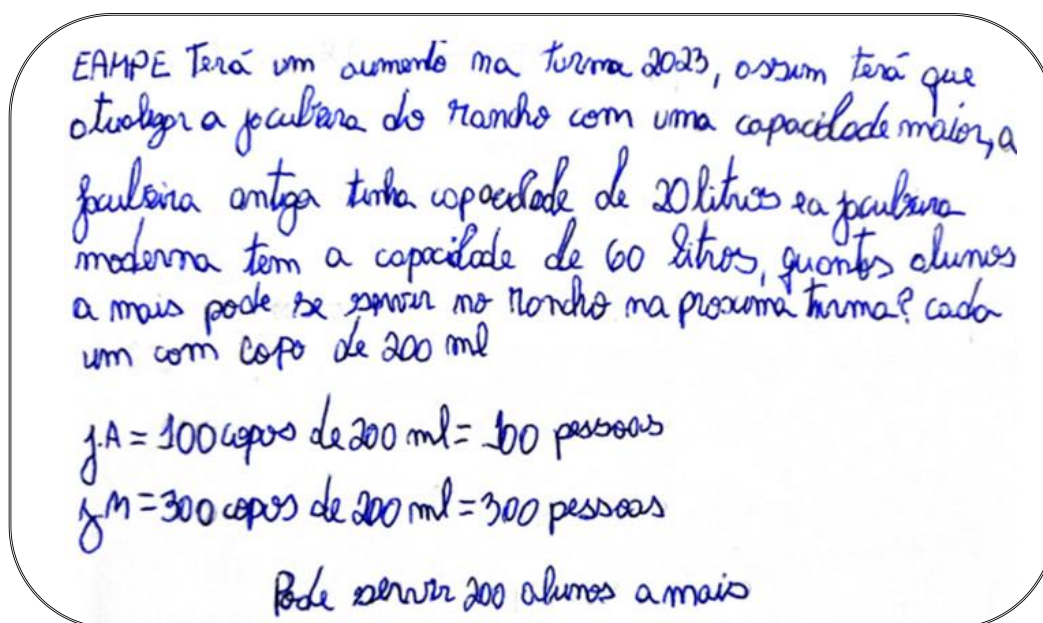 EAMPE Terá um aumento na turma 2023, assim terá que
atualizar a jacubeira do rancho com uma capacidade maior, a
jacubeira antiga tinha capacidade de 20 litros e a jacubeira
moderna tem a capacidade de 60 litros, quantos alunos
a mais pode se servir no rancho na proxima turma? cada
um com copo de 200 ml
J.A = 100 copos de 200 ml = 100 pessoas
J.M = 300 copos de 200 ml = 300 pessoas
Pode servir 200 alunos a mais